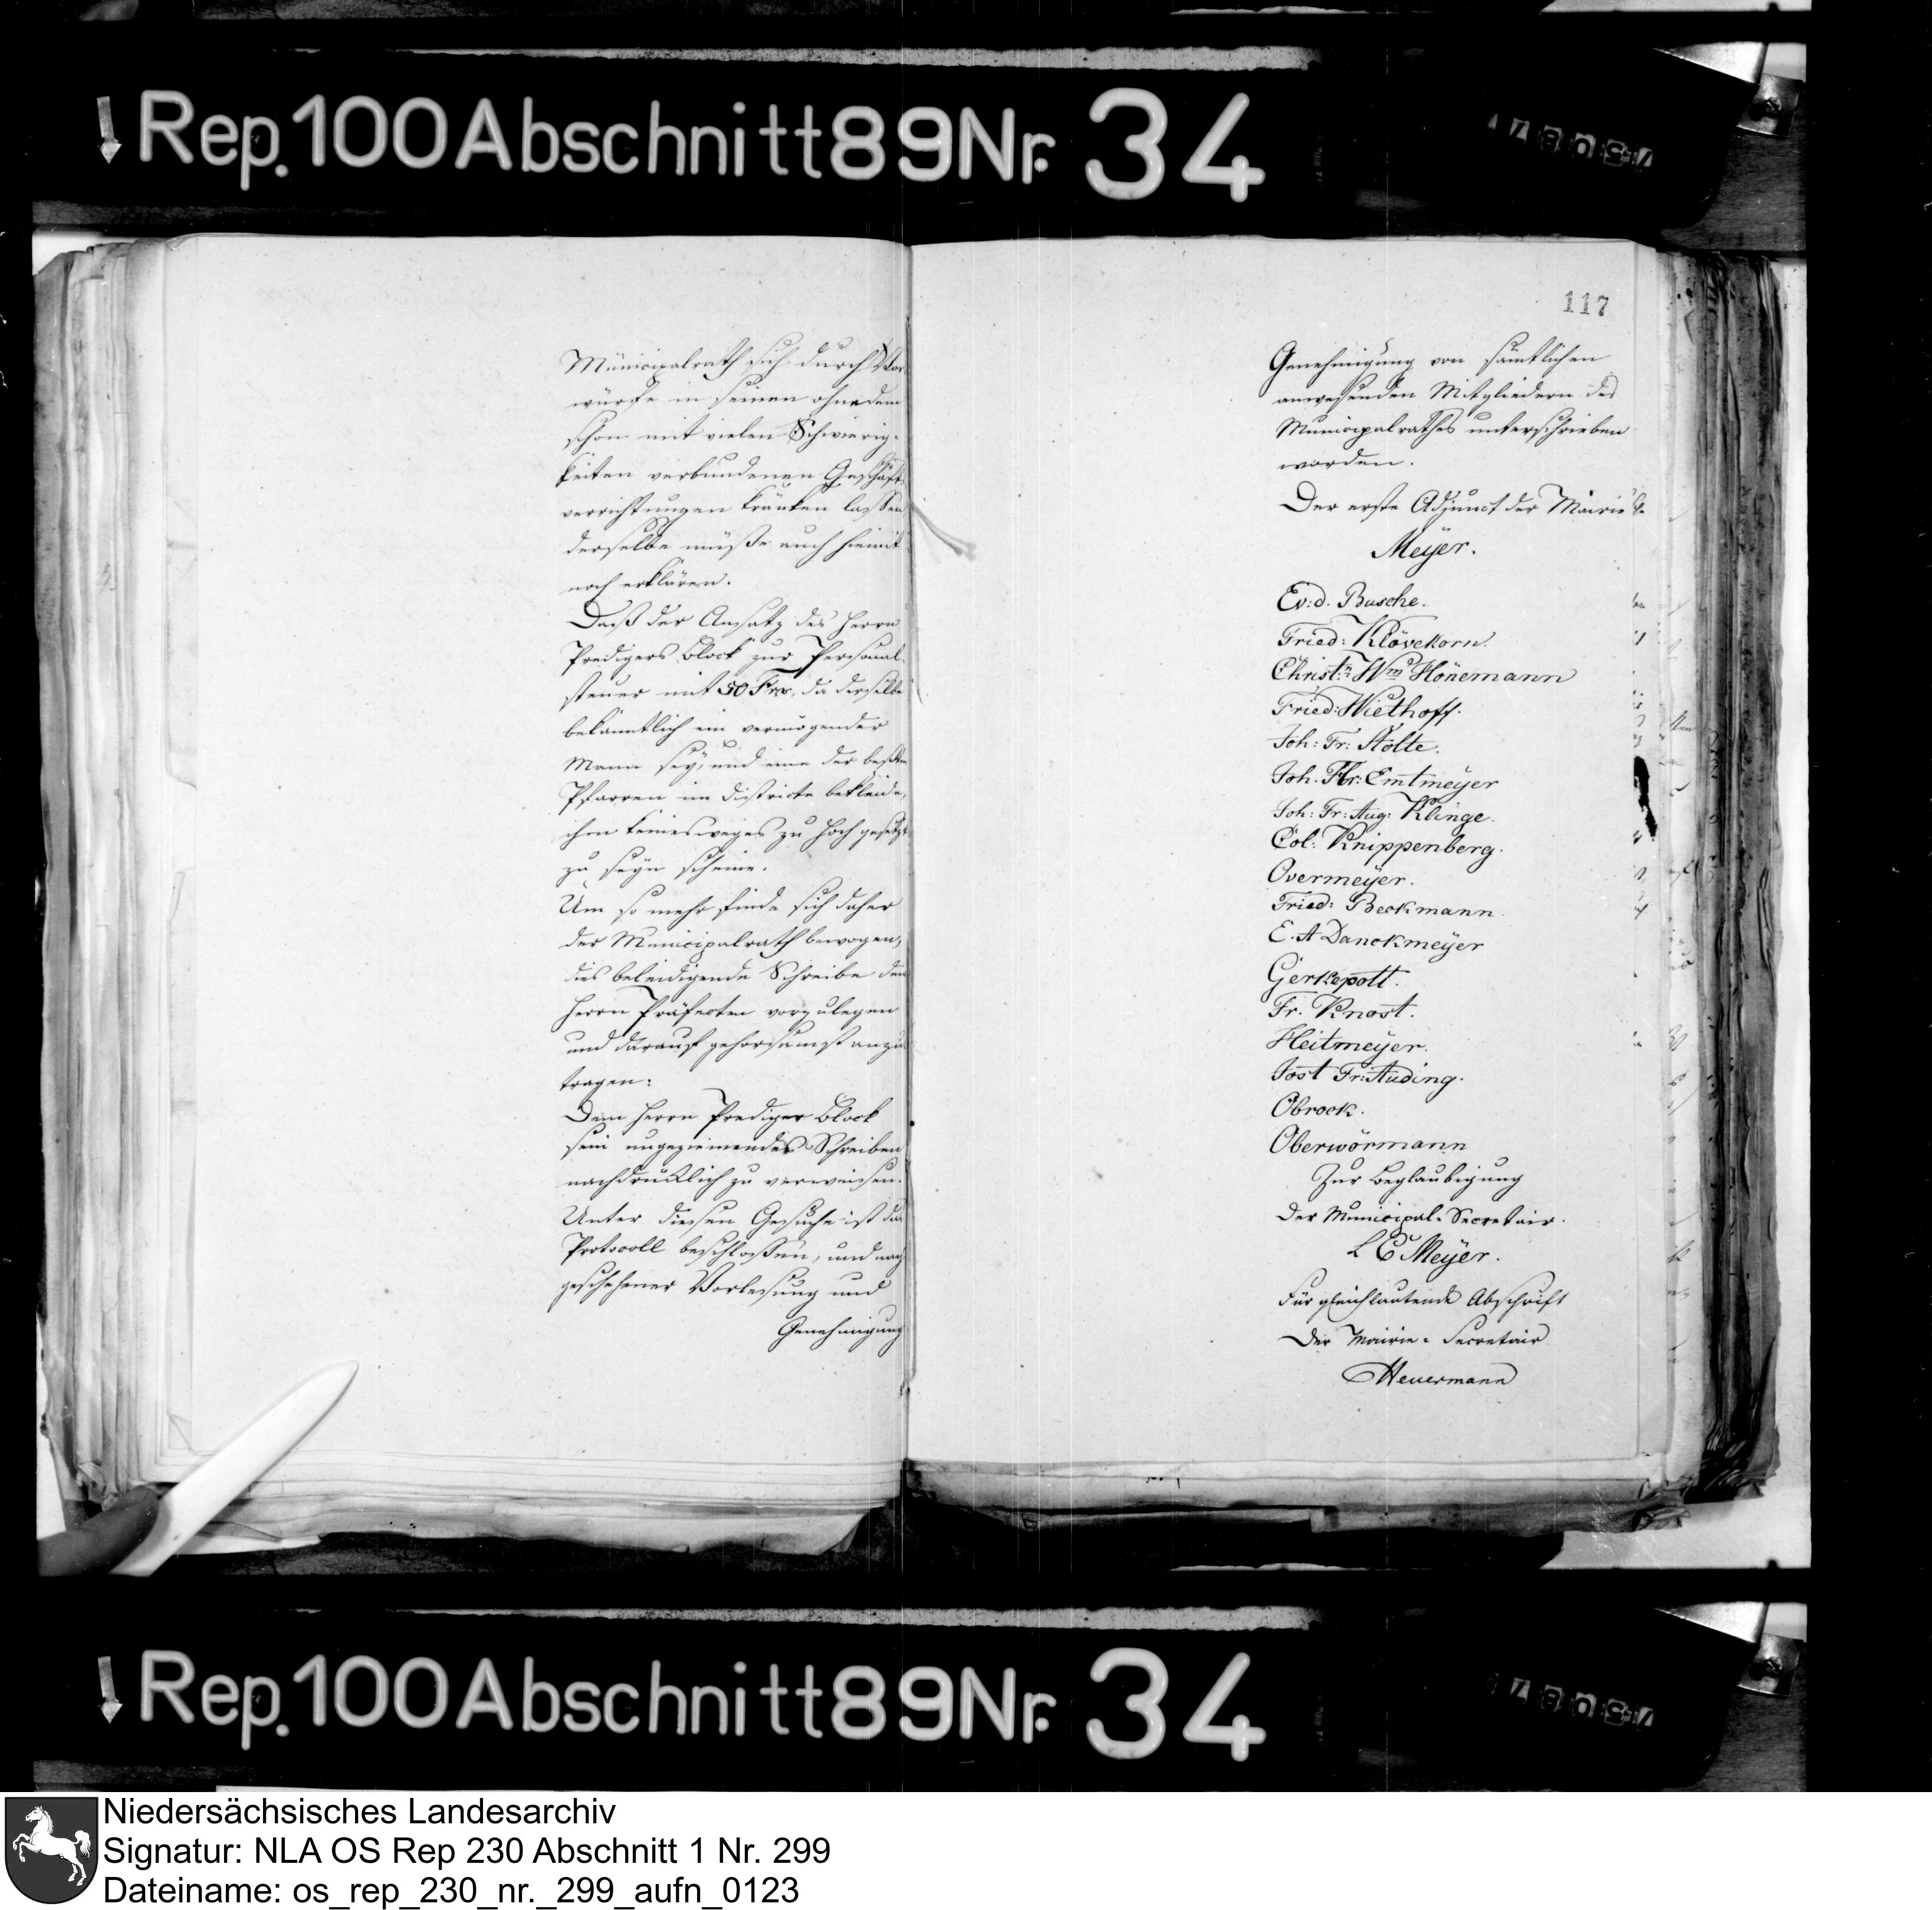 Rep. 100 Abschnitt 89 Nr. 34
Municipalrath sich durch Vor
würfe in seinen ohnedem
schon mit vielen Schwierig-
keiten verbundenen Geschäfts
verrichtungen kränken lassen
derselbe müße auch hiemit
noch erklären.
Daß der Ansatz des Herrn
Predigers Block zur Personal-
steuer mit 50 Frcs, da derselbe
bekanntlich ein vermögender
Mann sey, und eine der besten
Pfarren im Districte bekleide,
ihm keinesweges zu hoch gesetzt
zu seyn scheine.
Um so mehr finde sich daher
der Municipalrath bewogen,
dies beleidigende Schreibe dem
Herrn Präfecten vorzulegen
und darauf gehorsamst anzu
tragen:
Dem Herrn Prediger Block
sein ungeziemendes Schreiben
nachdrücklich zu verweisen.
Unter diesem Gesuche ist das
Protocoll beschlossen, und nach
geschehener Vorlesung und
Genehmigung
117
Genehmigung von sämtlichen
anwesenden Mitgliedern des
Municipalrathes unterschrieben
worden.
Der erste Adjunct der Mairie
Meÿer.
Ev: d. Busche.
Fried: Klövekorn.
Christn Wm Hönemann
Fried: Wiethoff.
Joh: Fr: Nolte.
Joh. Hr: Emtmeÿer
Joh: Fr: Aug: Klinge.
Col: Knippenberg.
Overmeÿer.
Fried: Beckmann.
E. A Danckmeÿer
Gerkepott.
Fr. Knost.
Heitmeÿer.
Jost Fr: Auding.
Obrock.
Oberwörmann
Zur Beglaubigung
Der Municipal-Secretair.
L E Meÿer.
Für gleichlautende Abschrift
Der Mairie-Secretair
Heuermann
Rep. 100 Abschnitt 89 Nr. 34
Niedersächsisches Landesarchiv
Signatur: NLA OS Rep 230 Abschnitt 1 Nr. 299
Dateiname: os_rep_230_nr._299_aufn_0123